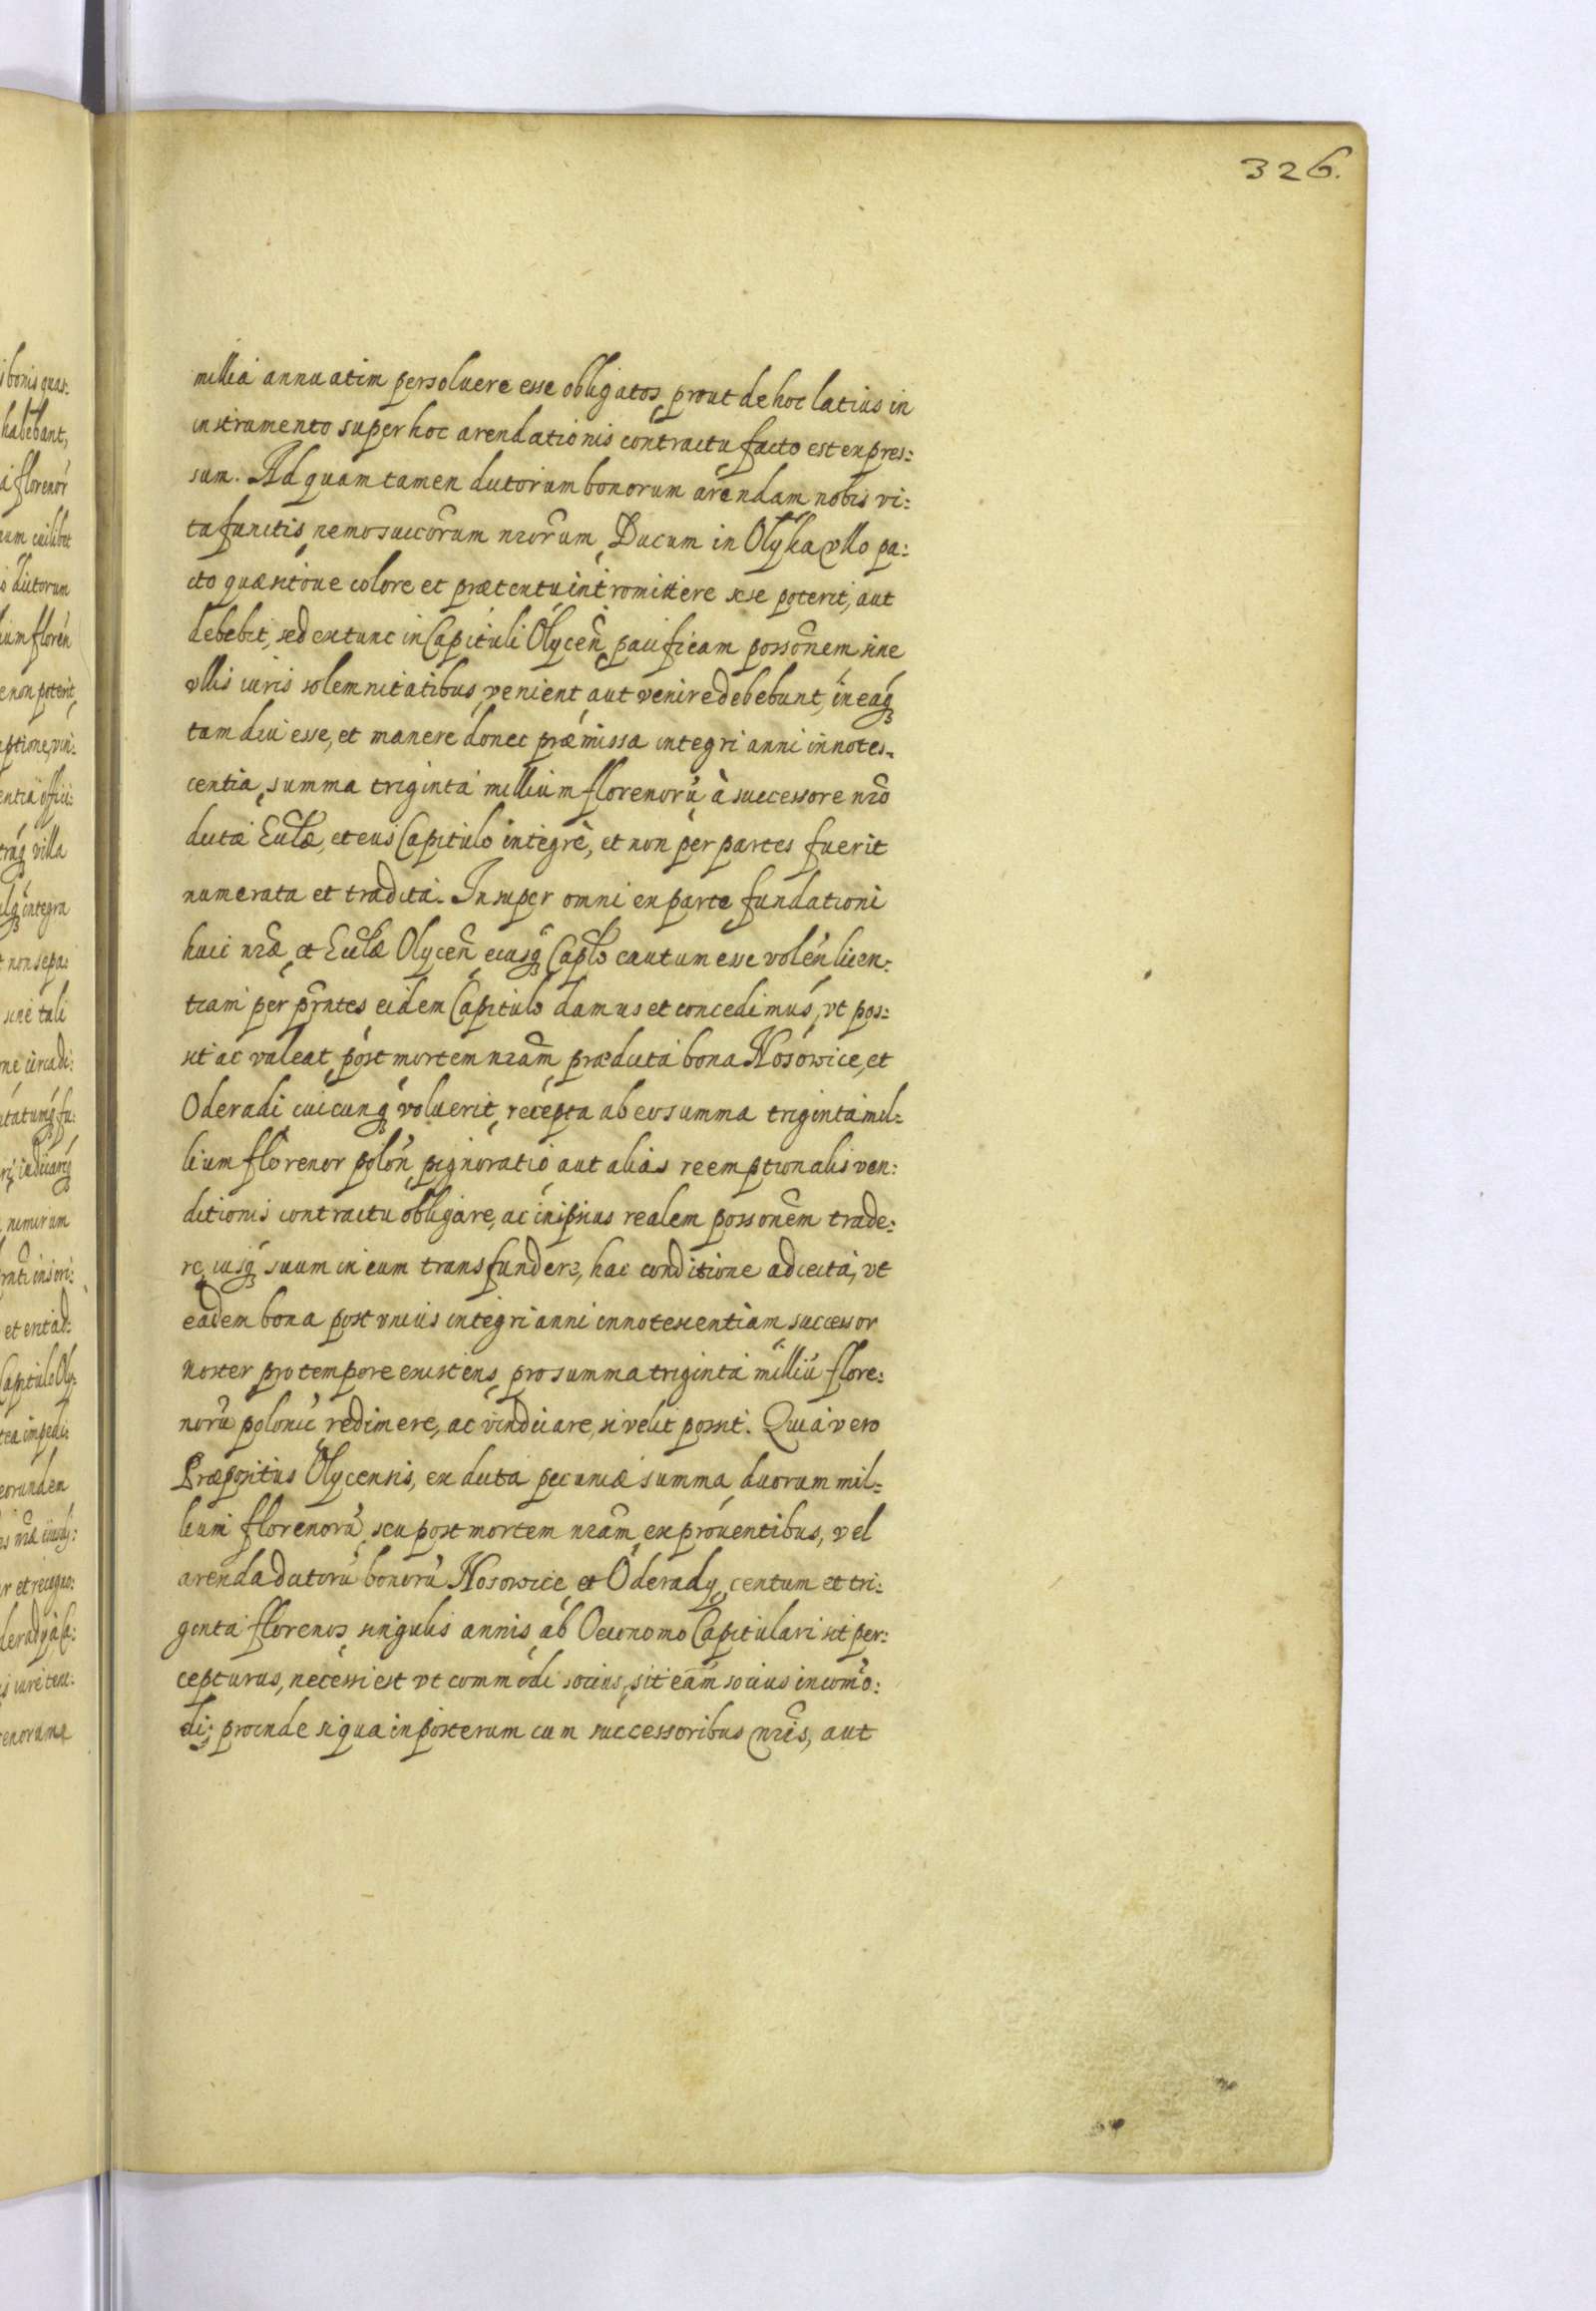 326.
millia annuatim persoluere esse obligatos, prout de hoc latius in
instrumento super hoc arendationis contractu facto est expres:
sum. Ad quam tamen dictorum bonorum arendam nobis vi:
ta functis, nemo succorum nrorum, Ducum in Olyka vllo pa:
cto quæsitoue colore et prætextu intromittere sese poterit, aut
debebit, sed extunc in Capituli Olycen̄, pacificam possonem sine
vllis iuris solemnitatibus, venient, aut venire debebunt, in eaq3
tam diu esse, et manere donec præmissa integri anni innotes-
centia, summa triginta millium florenorū, à successore nro
dictæ Eccłæ, et eius Capitulo integrè, et non per partes fuerit
numerata et tradita. Insuper omni ex parte fundationi
huic nræ, et Eccłæ Olycen̄, eiusq3 Capło cautum esse volen̄ licen:
tiam per prn̄tes eidem Capitulo damus et concedimus, vt pos:
sit ac valeat, post mortem nram, prædicta bona Nosowice, et
Oderadi cuicunq3 voluerit, recepta ab eo summa triginta mil:
lium florenor polon̄, pignoratio, aut alias reemptionalis ven:
ditionis contractu obligare, ac in ipsius realem possonem trade:
re, iusq3 suum in eum transfundere, hac conditione adiecta, vt
eadem bona post vnius integri anni innotescentiam, successor
noster pro tempore existens, pro summa triginta milliū flore:
norū polonic̄, redimere, ac vindicare, si velit possit. Quia vero
Præpositus Olycensis, ex dicta pecuniæ summa, duorum mil:
lium florenorū, seu post mortem nram, ex prouentibus, vel
arenda dictorū bonorū Nosowice, et Oderady, centum et tri:
ginta florenos, singulis annis, ab Oeconomo Capitulari sit per:
cepturus, necesse est vt commodi socius, sit etiam socius incomo:
di; proinde si qua in posterum cum successoribus nris, aut